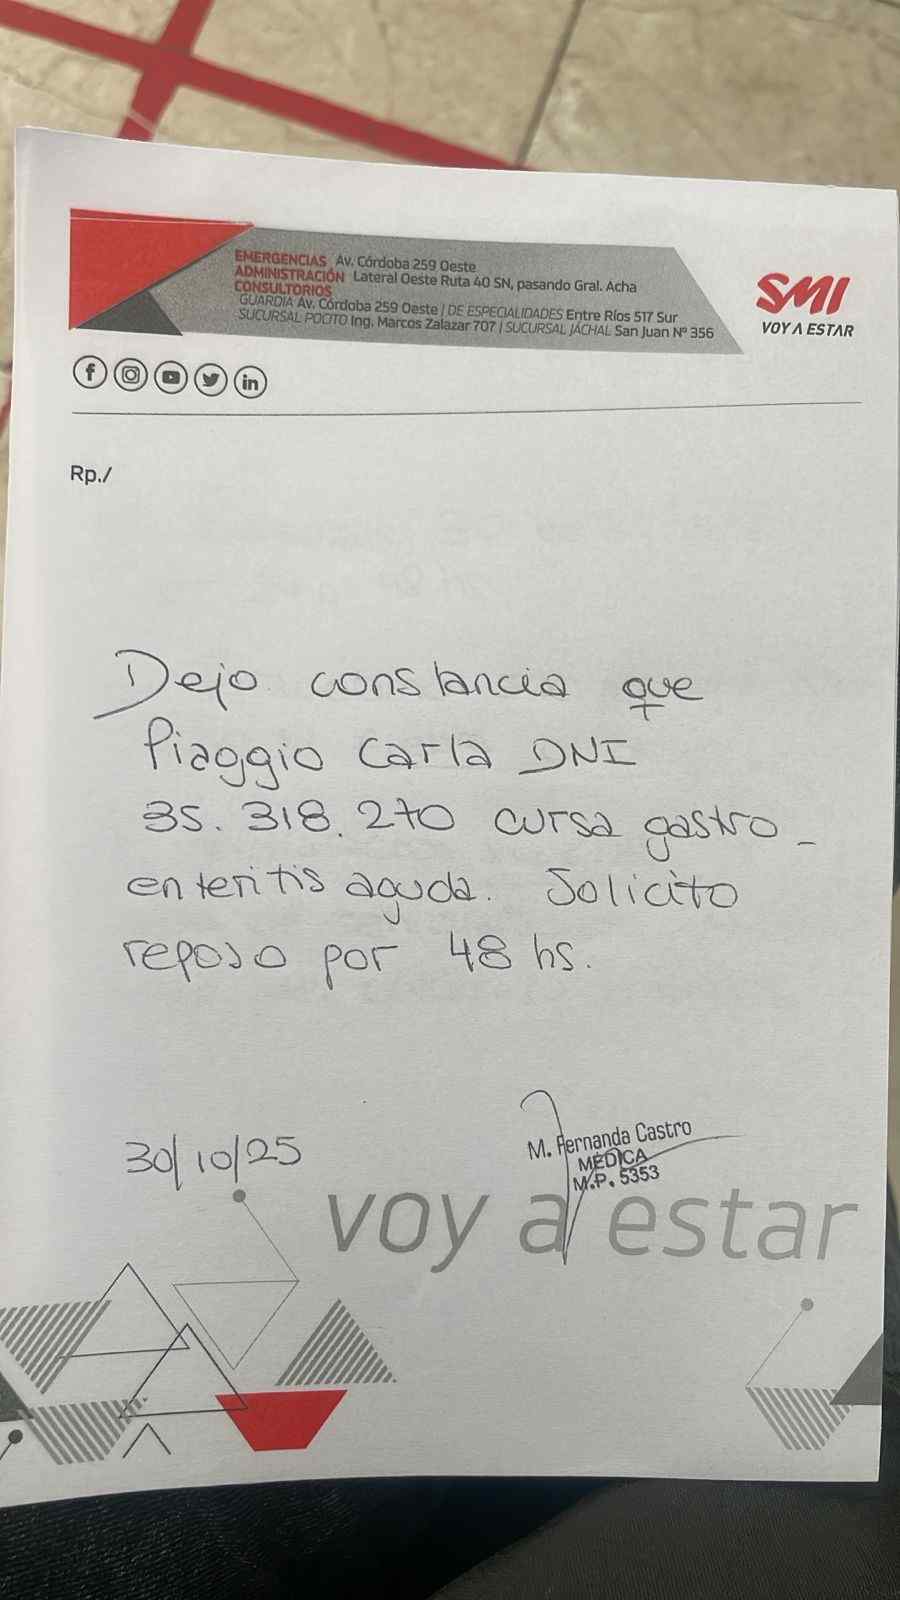 EMERGENCIAS Av. Córdoba 259 Oeste
ADMINISTRACIÓN Lateral Oeste Ruta 40 SN, pasando Gral. Acha
CONSULTORIOS
GUARDIA Av. Córdoba 259 Oeste | DE ESPECIALIDADES Entre Ríos 517 Sur
SUCURSAL POCITO Ing. Marcos Zalazar 707 | SUCURSAL JÁCHAL San Juan Nº 356
SMI
VOY A ESTAR
Rp./
Dejo constancia que
Piaggio Carla DNI
35.318.270 cursa gastro-
enteritis aguda. Solicito
reposo por 48 hs.
30/10/25
M. Fernanda Castro
MÉDICA
M.P. 5353
voy a estar